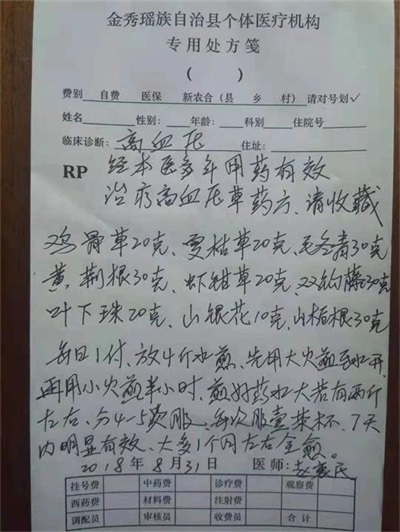 金秀瑶族自治县个体医疗机构
专用处方笺
( )
费别 自费 医保 新农合(县 乡 村) 请对号划✓
姓名 性别: 年龄: 科别 住院号
临床诊断: 高血压 住址:
RP 经本医多年用药有效
治疗高血压草药方、请收藏
鸡骨草20克、夏枯草20克、毛冬青30克
黄荆根30克、虾钳草20克、双钩藤30克
叶下珠20克、山银花10克、山栀根30克
每日1付、放4斤水煎、先用大火煎至水开
再用小火煎半小时、煎好药水大约有两斤
左右、分4-5次服、每次服壹茶杯、7天
内明显有效、大多1个月左右全愈。
2018年8月31日 医师:
挂号费 中药费 诊疗费 观察费
西药费 材料费 注射费
调配员 审核员 收费员 合计